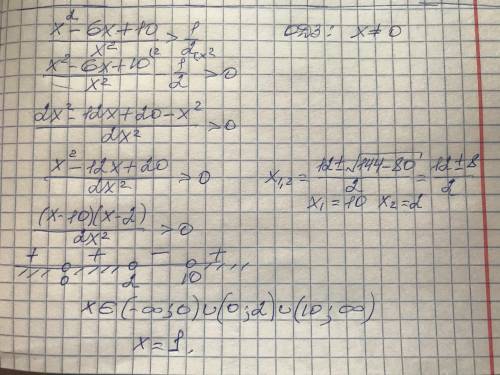 (x²-6x+10)/x² > 1/2    ОДЗ: x≠0
(x²-6x+10)/x² (2 - 1/2 (x² > 0
(2x²-12x+20-x²)/2x² > 0
(x²-12x+20)/2x² > 0    x₁,₂ = (12±√(144-80))/2 = (12±8)/2
x₁=10  x₂=2
((x-10)(x-2))/2x² > 0
+ + - +
0 2 10
x∈(-∞;0)∪(0;2)∪(10;∞)
x=1.